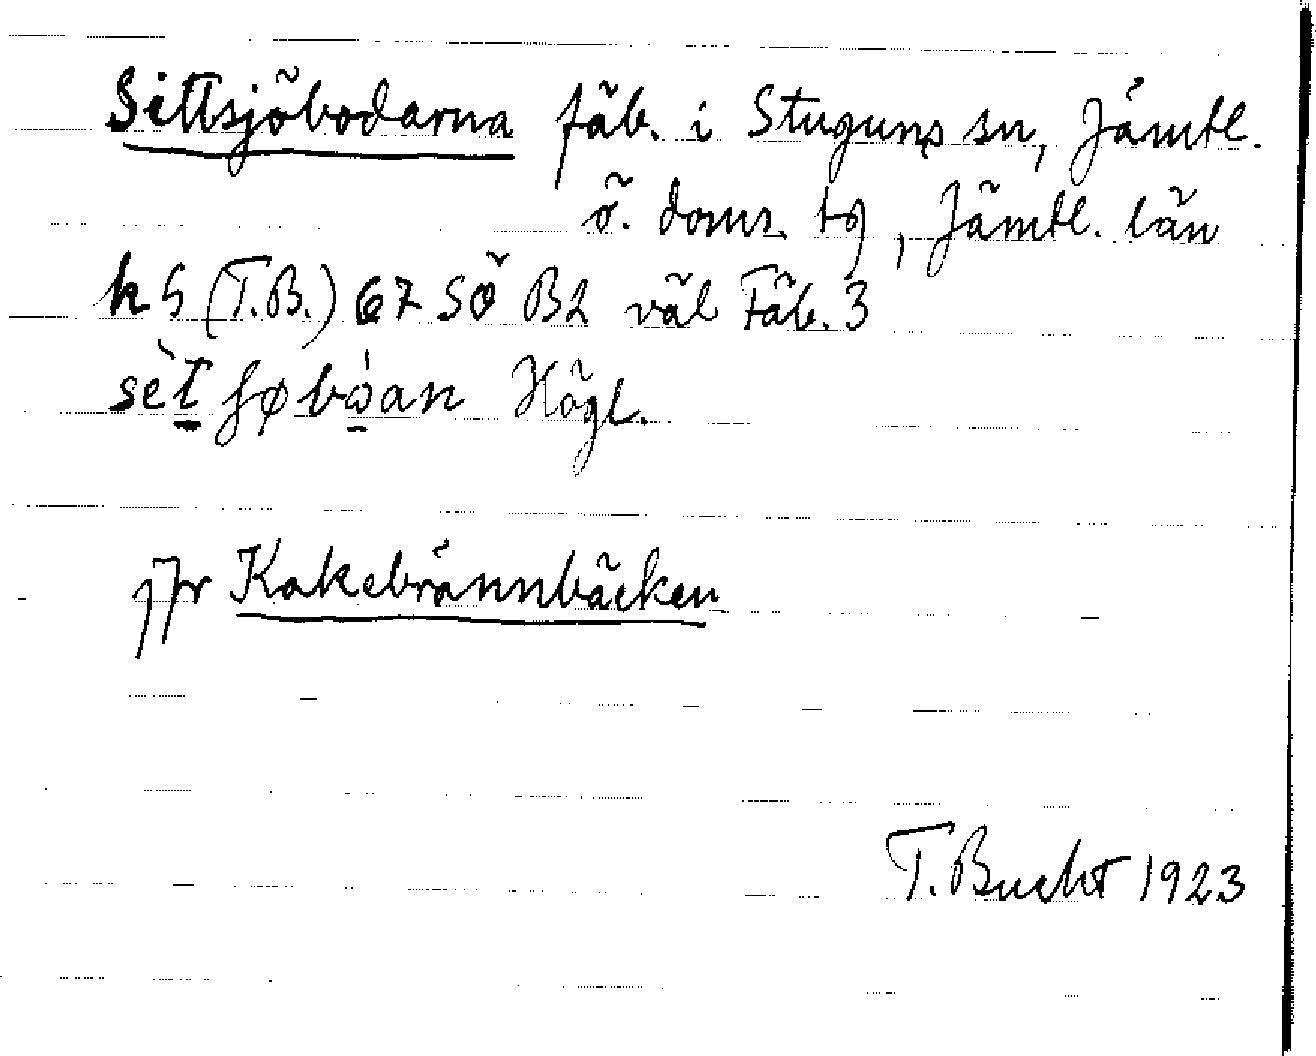 Sittsjöbodarna fäb. i Stuguns sn, Jämtl.
ö. doms. tg, Jämtl. län
k 5 (T.B.) 67 SÖ B2 väl Fäb. 3
sèt̲ʃøbò̲an Högl.
jfr Kakebrännbäcken
T. Bucht 1923